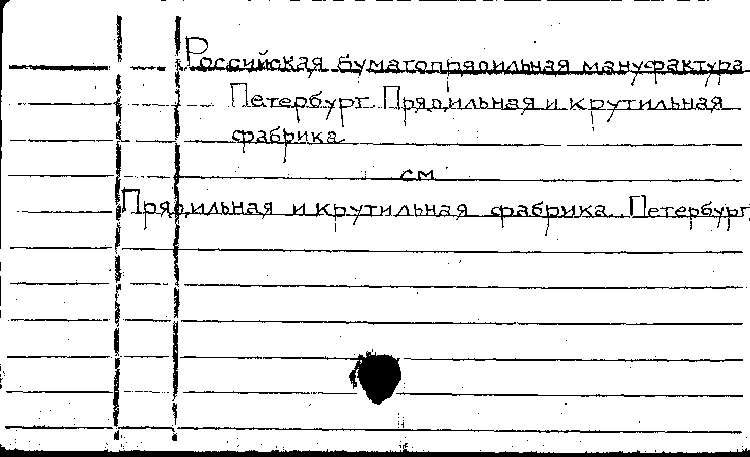 Российская бумагопрядильная мануфактура
Петербург. Прядильная и крутильная
фабрика
см.
Прядильная и крутильная фабрика. Петербург